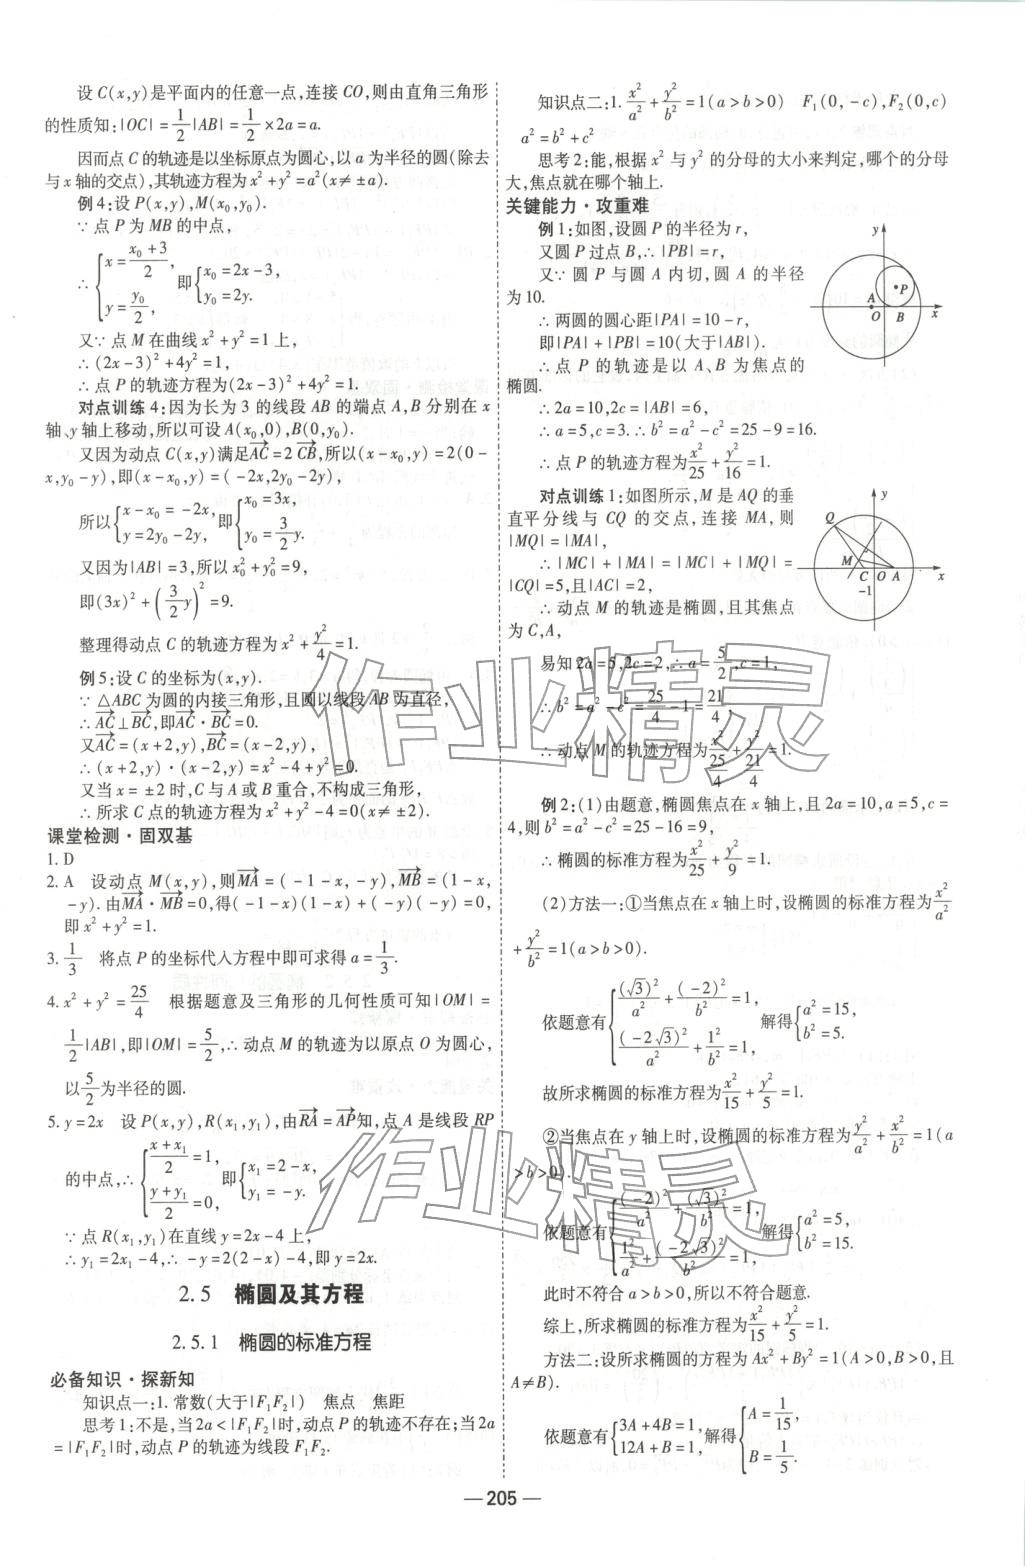 设 C(x,y)是平面内的任意一点,连接 CO,则由直角三角形
的性质知:|OC|=1/2|AB|=1/2×2a=a.
因而点 C 的轨迹是以坐标原点为圆心,以 a 为半径的圆(除去
与 x 轴的交点),其轨迹方程为 x²+y²=a²(x≠±a).
例 4:设 P(x,y),M(x₀,y₀).
∵ 点 P 为 MB 的中点,
∴ {x=(x₀+3)/2, y=y₀/2, 即{x₀=2x-3, y₀=2y.
又∵ 点 M 在曲线 x²+y²=1 上,
∴ (2x-3)²+4y²=1,
∴ 点 P 的轨迹方程为(2x-3)²+4y²=1.
对点训练 4:因为长为 3 的线段 AB 的端点 A,B 分别在 x
轴、y 轴上移动,所以可设 A(x₀,0),B(0,y₀).
又因为动点 C(x,y)满足→AC=2→CB,所以(x-x₀,y)=2(0-
x,y₀-y),即(x-x₀,y)=(-2x,2y₀-2y),
所以{x-x₀=-2x, y=2y₀-2y, 即{x₀=3x, y₀=3/2 y.
又因为|AB|=3,所以 x₀²+y₀²=9,
即(3x)²+(3/2 y)²=9.
整理得动点 C 的轨迹方程为 x²+y²/4=1.
例 5:设 C 的坐标为(x,y).
∵ △ABC 为圆的内接三角形,且圆以线段 AB 为直径,
∴ →AC⊥→BC,即→AC·→BC=0.
又→AC=(x+2,y),→BC=(x-2,y),
∴ (x+2,y)·(x-2,y)=x²-4+y²=0.
又当 x=±2 时,C 与 A 或 B 重合,不构成三角形,
∴ 所求 C 点的轨迹方程为 x²+y²-4=0(x≠±2).
课堂检测·固双基
1. D
2. A 设动点 M(x,y),则→MA=(-1-x,-y),→MB=(1-x,
-y).由→MA·→MB=0,得(-1-x)(1-x)+(-y)(-y)=0,
即 x²+y²=1.
3. 1/3 将点 P 的坐标代入方程中即可求得 a=1/3.
4. x²+y²=25/4 根据题意及三角形的几何性质可知|OM|=
1/2|AB|,即|OM|=5/2,∴ 动点 M 的轨迹为以原点 O 为圆心,
以5/2为半径的圆.
5. y=2x 设 P(x,y),R(x₁,y₁),由→RA=→AP知,点 A 是线段 RP
的中点,∴ {(x+x₁)/2=1, (y+y₁)/2=0, 即{x₁=2-x, y₁=-y.
∵ 点 R(x₁,y₁)在直线 y=2x-4 上,
∴ y₁=2x₁-4,∴ -y=2(2-x)-4,即 y=2x.
2.5 椭圆及其方程
2.5.1 椭圆的标准方程
必备知识·探新知
知识点一:1.常数(大于|F₁F₂|) 焦点 焦距
思考 1:不是,当 2a<|F₁F₂|时,动点 P 的轨迹不存在;当 2a
=|F₁F₂|时,动点 P 的轨迹为线段 F₁F₂.
知识点二:1. x²/a²+y²/b²=1(a>b>0) F₁(0,-c),F₂(0,c)
a²=b²+c²
思考 2:能,根据 x² 与 y² 的分母的大小来判定,哪个的分母
大,焦点就在哪个轴上.
关键能力·攻重难
例 1:如图,设圆 P 的半径为 r,
又圆 P 过点 B,∴ |PB|=r,
又∵ 圆 P 与圆 A 内切,圆 A 的半径
为 10.
∴ 两圆的圆心距|PA|=10-r,
即|PA|+|PB|=10(大于|AB|).
∴ 点 P 的轨迹是以 A、B 为焦点的
椭圆.
y
P
A
O B x
∴ 2a=10,2c=|AB|=6,
∴ a=5,c=3.∴ b²=a²-c²=25-9=16.
∴ 点 P 的轨迹方程为x²/25+y²/16=1.
对点训练 1:如图所示,M 是 AQ 的垂
直平分线与 CQ 的交点,连接 MA,则
|MQ|=|MA|,
∴ |MC|+|MA|=|MC|+|MQ|=
|CQ|=5,且|AC|=2,
∴ 动点 M 的轨迹是椭圆,且其焦点
为 C,A,
y
Q
M
C O A x
-1
易知 2a=5,2c=2,∴ a=5/2,c=1,
∴ b²=a²-c²=25/4-1=21/4,
∴ 动点 M 的轨迹方程为x²/(25/4)+y²/(21/4)=1.
例 2:(1)由题意,椭圆焦点在 x 轴上,且 2a=10,a=5,c=
4,则 b²=a²-c²=25-16=9,
∴ 椭圆的标准方程为x²/25+y²/9=1.
(2)方法一:①当焦点在 x 轴上时,设椭圆的标准方程为x²/a²
+y²/b²=1(a>b>0).
依题意有{(√3)²/a²+(-2)²/b²=1, (-2√3)²/a²+1²/b²=1, 解得{a²=15, b²=5.
故所求椭圆的标准方程为x²/15+y²/5=1.
②当焦点在 y 轴上时,设椭圆的标准方程为y²/a²+x²/b²=1(a
>b>0).
依题意有{(-2)²/a²+(√3)²/b²=1, 1²/a²+(-2√3)²/b²=1, 解得{a²=5, b²=15.
此时不符合 a>b>0,所以不符合题意.
综上,所求椭圆的标准方程为x²/15+y²/5=1.
方法二:设所求椭圆的方程为 Ax²+By²=1(A>0,B>0,且
A≠B).
依题意有{3A+4B=1, 12A+B=1, 解得{A=1/15, B=1/5.
— 205 —
作业精灵
作业精灵